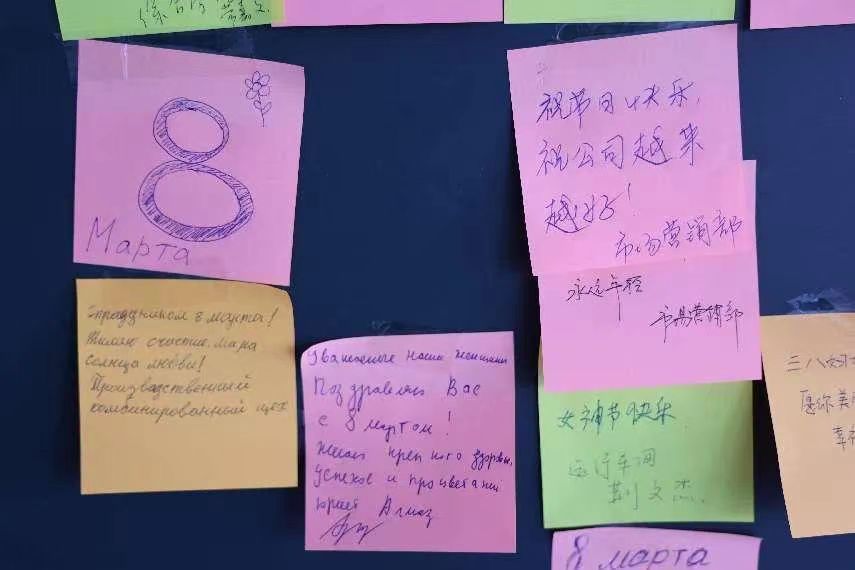 8
Марта
с праздником 8 марта!
Желаю счастия, мира
солнца любви!
Производственный
комбинированный цех
Уважаемые наши женщины
Поздравляю Вас
с 8 мартом!
Желаю крепкого здоровья,
успехов и процветания
юрист
祝节日快乐,
祝公司越来
越好!
市场营销部
永远年轻
市场营销部
女神节快乐
运行车间
荆文杰
三八妇
愿你美
幸
8 марта